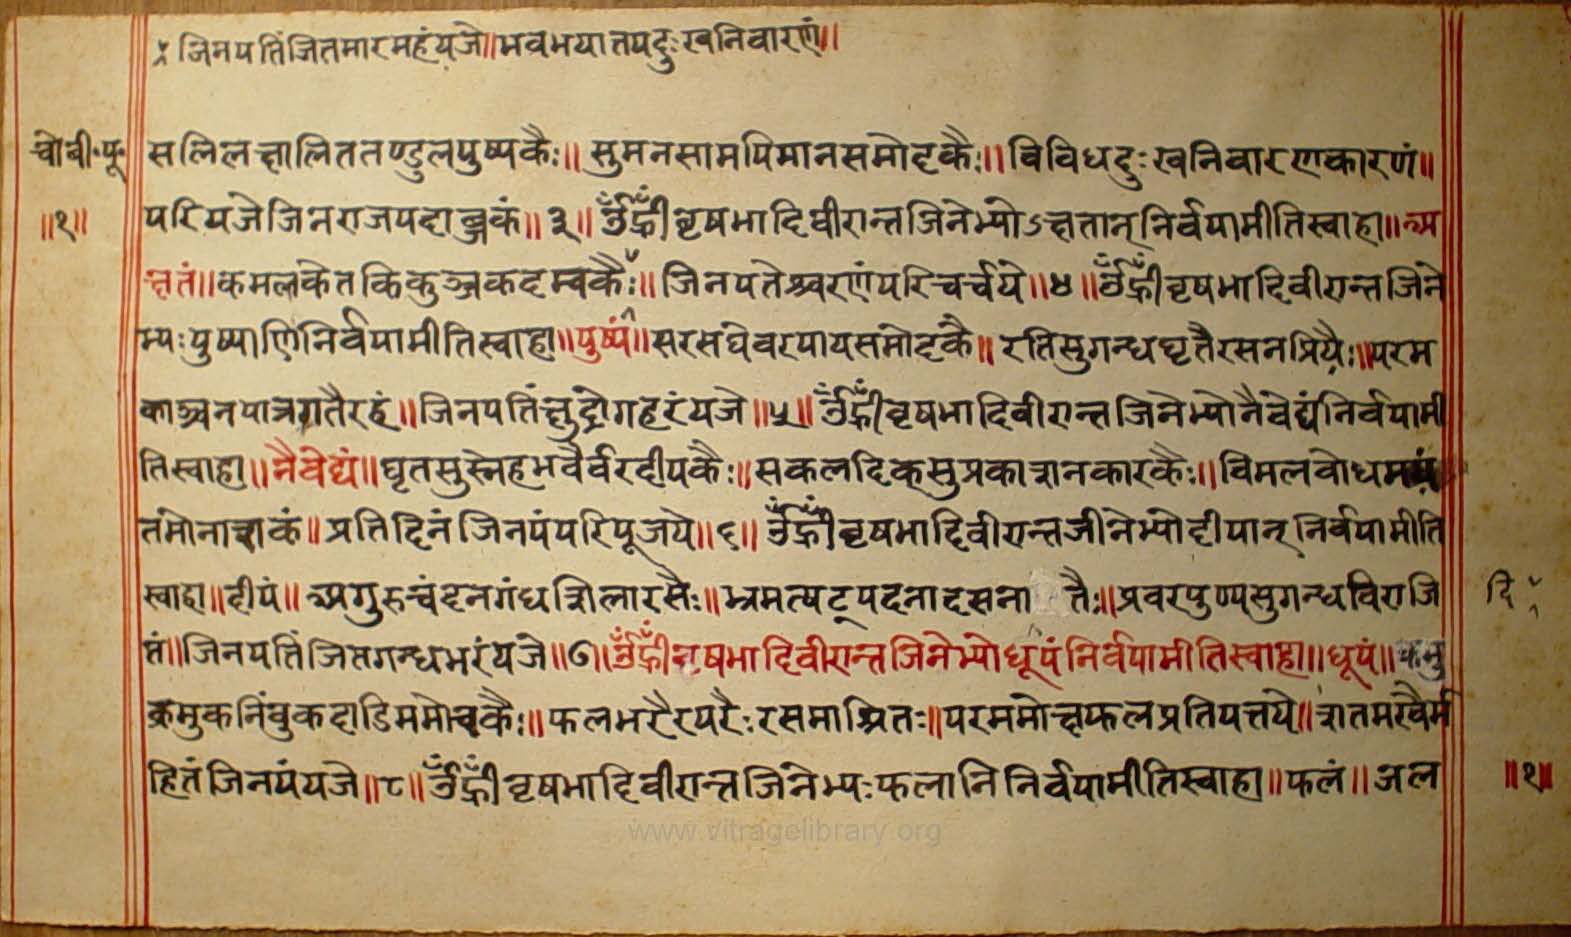 ४ जिनपतिंजितमारमहंयजे॥भवभयातपदुःखनिवारणं॥
चोवी॰पू॰
सलिलक्षालिततण्डुलपुष्पकैः॥ सुमनसामपिमानसमोदकैः॥ विविधदुःखनिवारणकारणं॥
॥१॥
परियजेजिनराजपदाब्जकं॥३॥ ॐह्रीँवृषभादिवीरान्तजिनेभ्योऽक्षतान्निर्वपामीतिस्वाहा॥अ
क्षतं॥कमलकेतकिकुञ्जकदम्बकैः॥ जिनपतेश्चरणंपरिचर्चये॥४॥ॐह्रीँवृषभादिवीरान्तजिने
भ्यःपुष्पाणिनिर्वपामीतिस्वाहा॥पुष्पं॥सरसघेवरपायसमोदकै॥ रतिसुगन्धघृतैरसनप्रियैः॥परम
काञ्चनपात्रगतैरहं॥जिनपतिंक्षुद्रोगहरंयजे॥५॥ॐह्रीँवृषभादिवीरान्तजिनेभ्योनैवेद्यंनिर्वपामी
तिस्वाहा॥नैवेद्यं॥घृतसुस्नेहभवैर्वरदीपकैः॥सकलदिक्सुप्रकाशनकारकैः॥विमलबोधमयं
तमोनाशकं॥प्रतिदिनंजिनपंपरिपूजये॥६॥ ॐह्रीँवृषभादिवीरान्तजीनेभ्योदीपान्निर्वपामीति
स्वाहा॥दीपं॥अगुरुचंदनगंधशिलारसैः॥भ्रमत्षट्पदनादसना तैः॥प्रवरपुण्यसुगन्धविराजि
दि
तं॥जिनपतिंजितगन्धभरंयजे॥७॥ॐह्रीँवृषभादिवीरान्तजिनेभ्योधूपंनिर्वपामीतिस्वाहा॥धूपं॥
क्रमुकनिंबुकदाडिममोचकैः॥फलभरैरपरैःरसमाश्रितः॥परममोक्षफलप्रतिपत्तये॥शतमखैर्म
हितंजिनपंयजे॥८॥ॐह्रीँवृषभादिवीरान्तजिनेभ्यःफलानिनिर्वपामीतिस्वाहा॥फलं॥अल
॥१॥
www.vitragelibrary.org